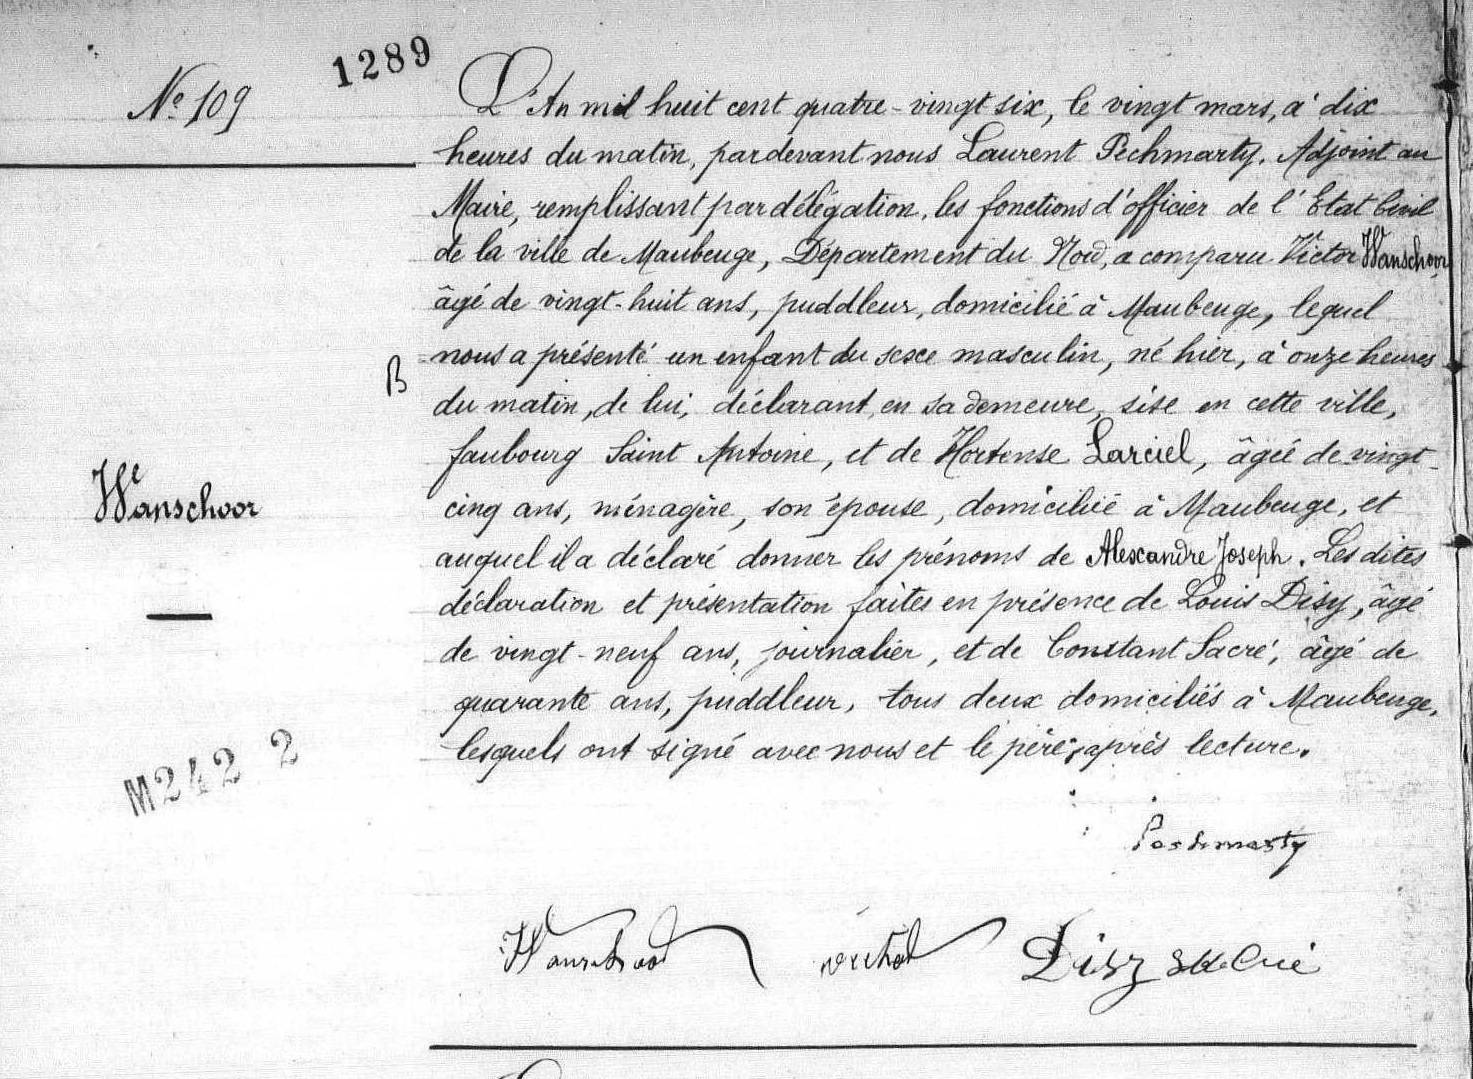 1289
Nº 109
L'An mil huit cent quatre-vingt six, le vingt mars, à dix
heures du matin, pardevant nous Laurent Pechmarty, Adjoint au
Maire, remplissant par délégation, les fonctions d'officier de l'Etat Civil
de la ville de Maubeuge, Département du Nord, a comparu Victor Wanschoor
âgé de vingt-huit ans, puddleur, domicilié à Maubeuge, lequel
nous a présenté un enfant du sexe masculin, né hier, à onze heures
B
du matin, de lui, déclarant, en sa demeure, sise en cette ville,
faubourg Saint Antoine, et de Hortense Larciel, âgée de vingt-
Wanschoor
cinq ans, ménagère, son épouse, domiciliée à Maubeuge, et
auquel il a déclaré donner les prénoms de Alexandre Joseph. Les dites
déclaration et présentation faites en présence de Louis Disy, âgé
de vingt-neuf ans, journalier, et de Constant Sacré, âgé de
quarante ans, puddleur, tous deux domiciliés à Maubeuge,
lesquels ont signé avec nous et le père, après lecture.
M242 2
Pechmarty
Disy